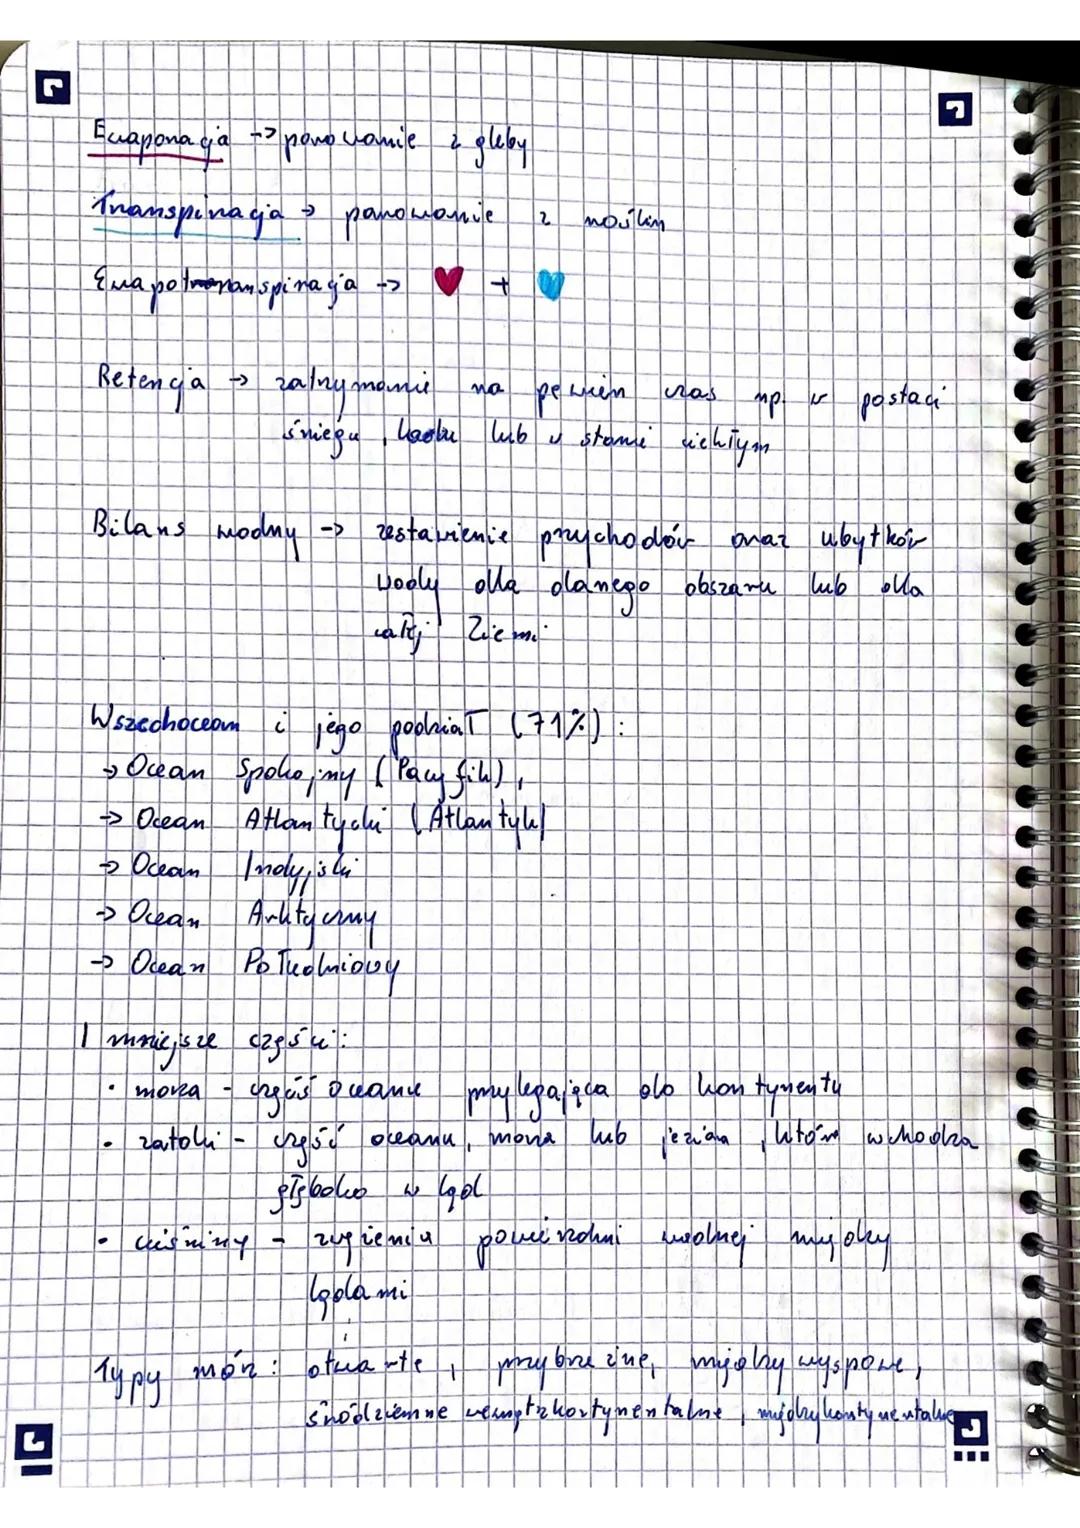 Ewaporacja -> parowanie z gleby
Transpiracja -> parowanie z roślin
Ewapotranspiracja -> ♥ + ♥
Retencja -> zatrzymanie na pewien czas np. w postaci
śniegu, lodu lub w stanie ciekłym
Bilans wodny -> zestawienie przychodów oraz ubytków
wody dla danego obszaru lub dla
całej Ziemi
Wszechocean i jego podział (71%):
-> Ocean Spokojny (Pacyfik),
-> Ocean Atlantycki (Atlantyk)
-> Ocean Indyjski
-> Ocean Arktyczny
-> Ocean Południowy
I mniejsze części:
• morza - część oceanu przylegająca do kontynentu
• zatoki - część oceanu, morza lub jeziora, która wchodzi
głęboko w ląd
• cieśniny - zwężenia powierzchni wodnej między
lądami
Typy mórz: otwarte, przybrzeżne, międzywyspowe,
śródziemne wewnątrzkontynentalne, międzykontynentalne